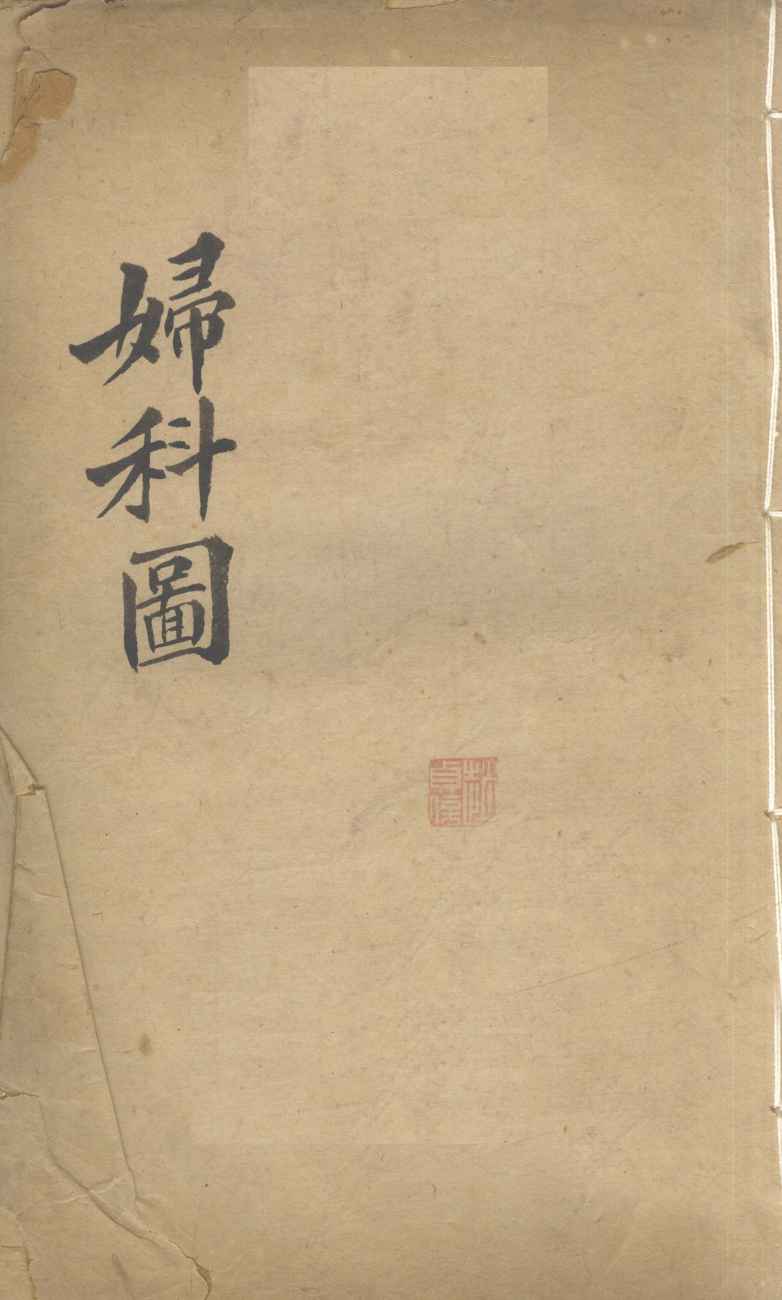 婦科圖